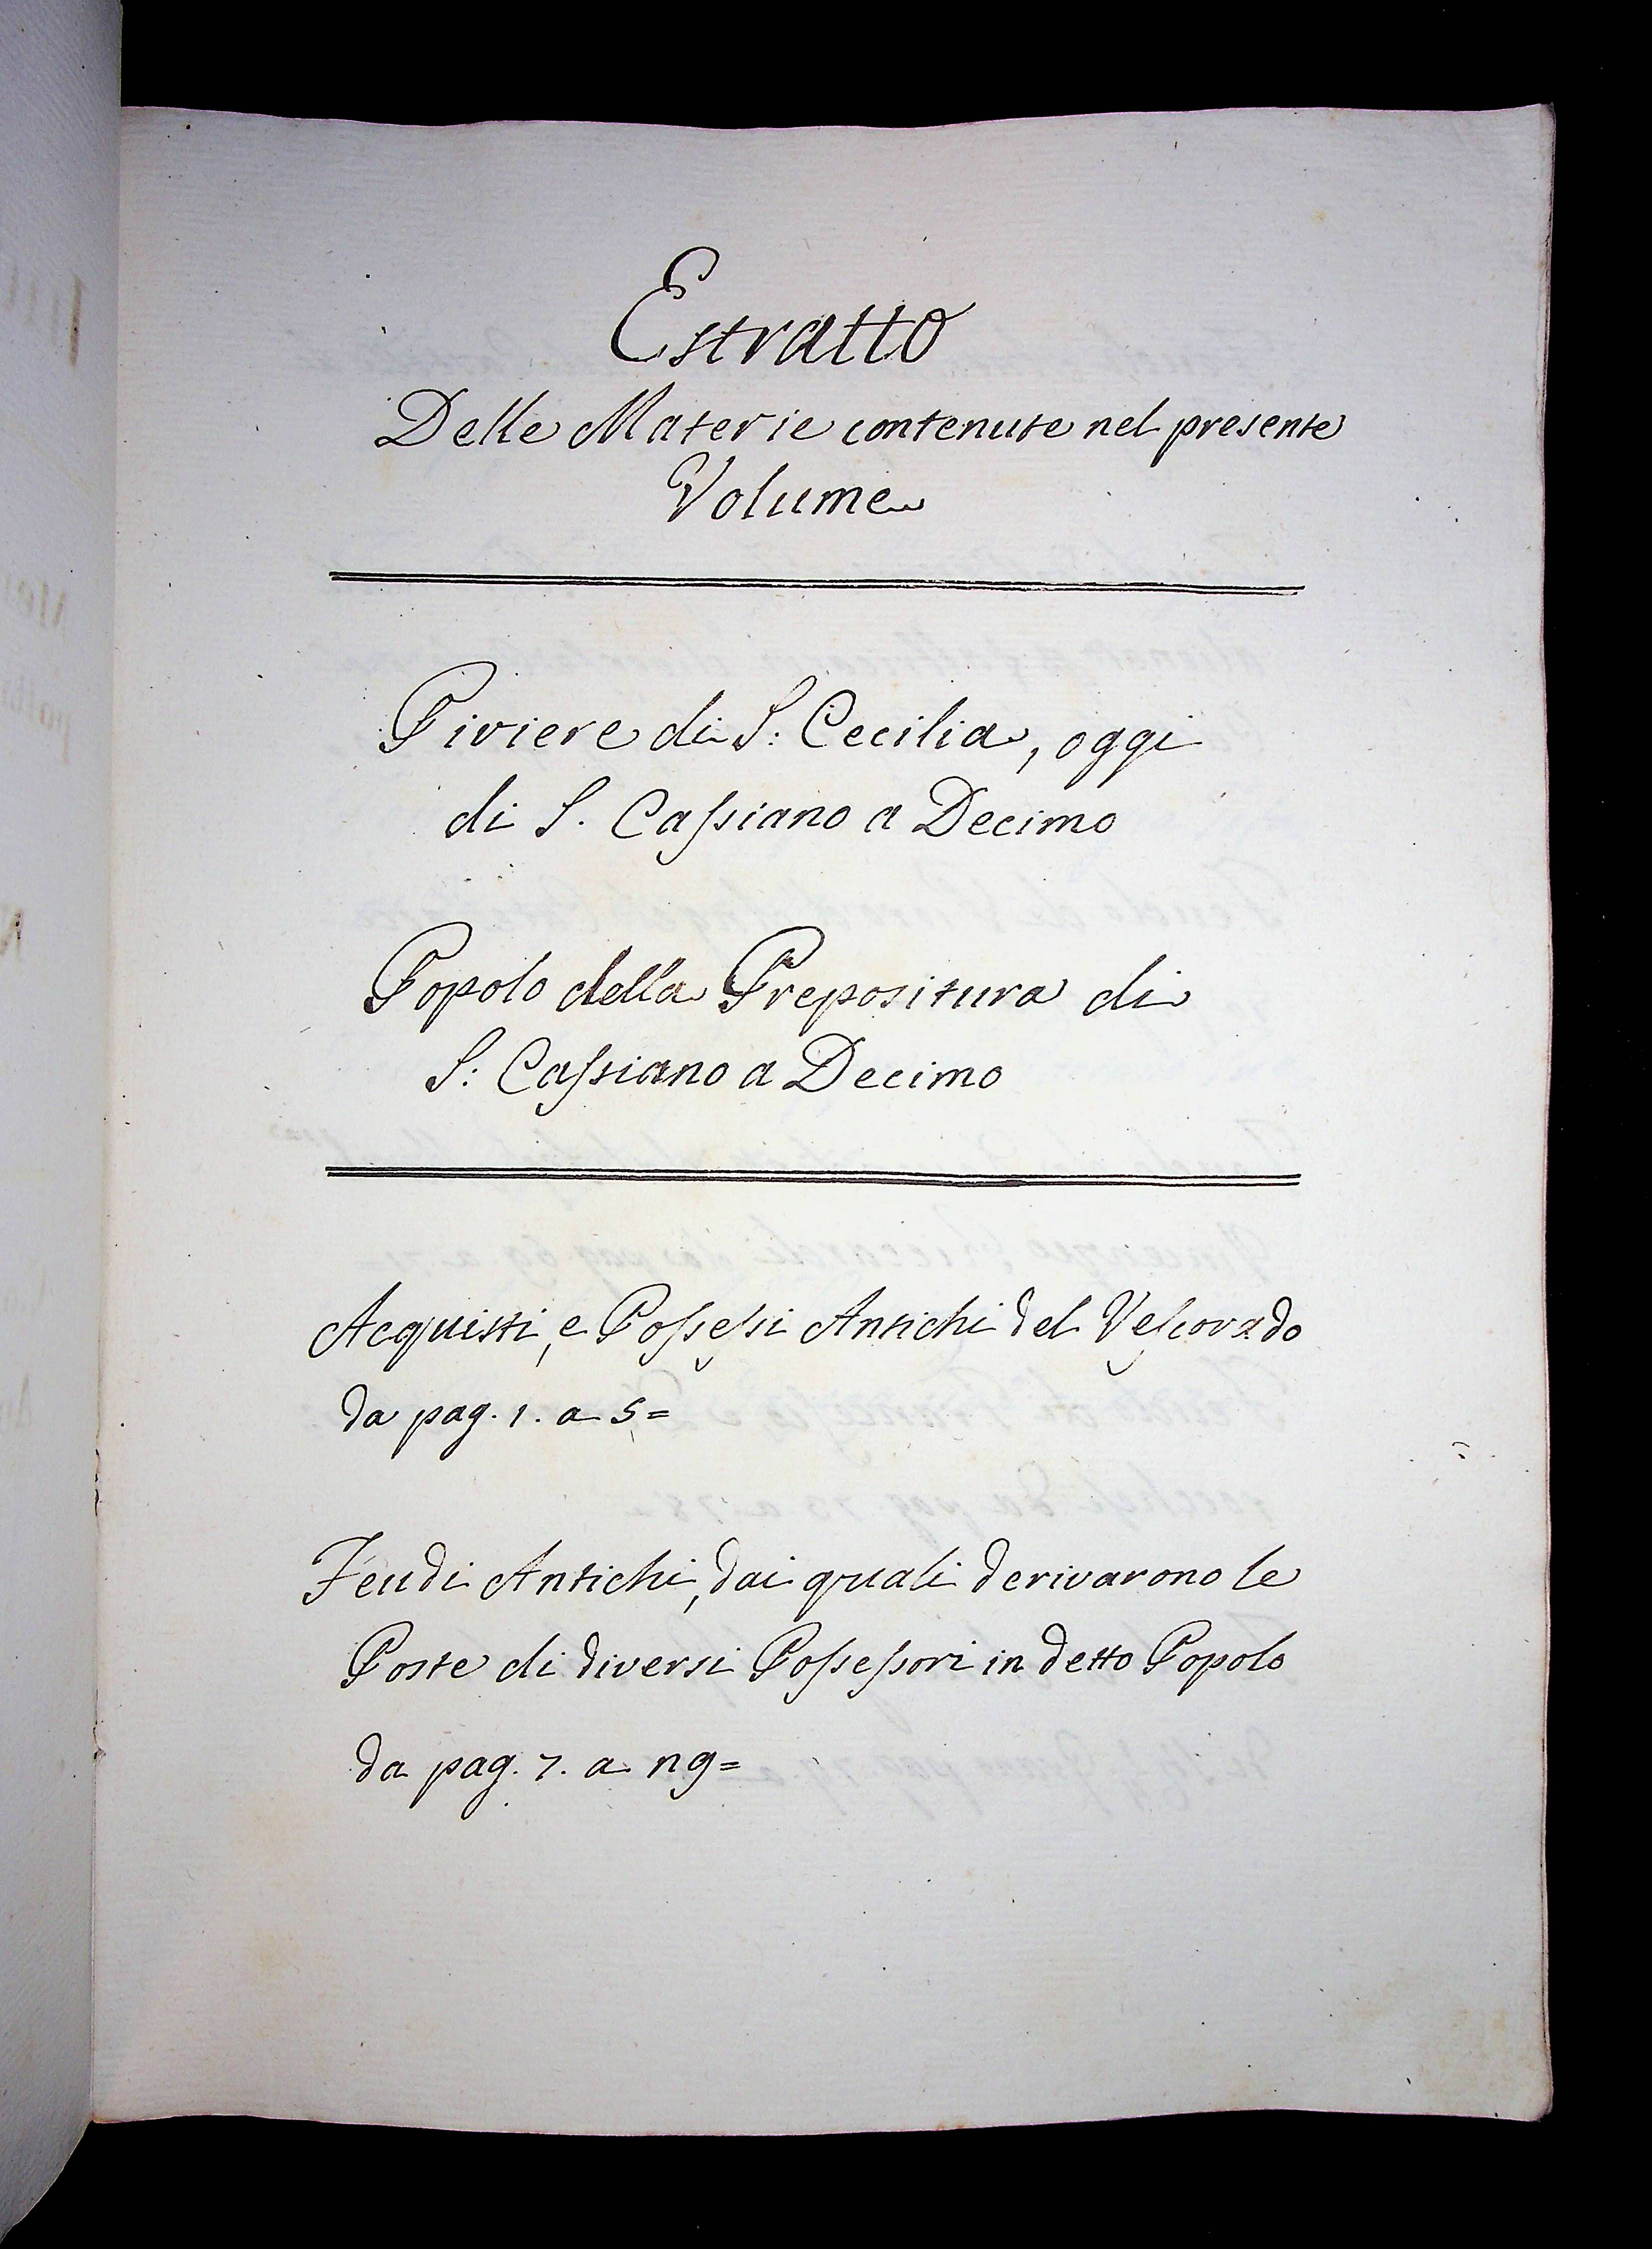 Estratto
Delle Materie contenute nel presente
Volume
Piviere di S: Cecilia, oggi
di S. Caſsiano a Decimo
Popolo della Prepositura di
S: Caſsiano a Decimo
Acquisti, e Poſseſsi Antichi del Veſcovado
da pag. 1. a 5=
Feudi Antichi, dai quali derivarono le
Poste di diversi Poſseſsori in detto Popolo
da pag. 7. a